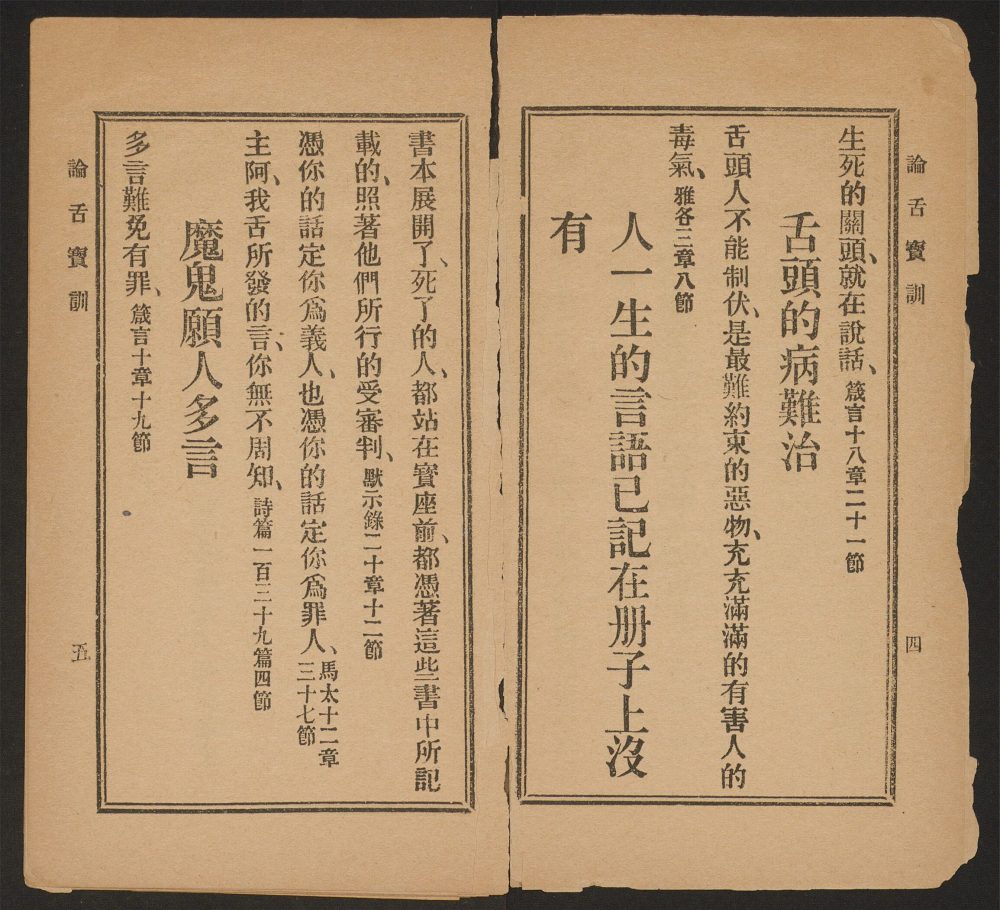 論舌寶訓
四
生死的關頭、就在說話、箴言十八章二十一節
舌頭的病難治
舌頭人不能制伏、是最難約束的惡物、充充滿滿的有害人的
毒氣、雅各三章八節
人一生的言語已記在册子上沒
有
書本展開了、死了的人、都站在寶座前、都憑著這些書中所記
載的、照著他們所行的受審判、默示錄二十章十二節
憑你的話定你爲義人、也憑你的話定你爲罪人、馬太十二章
三十七節
主阿、我舌所發的言、你無不周知、詩篇一百三十九篇四節
魔鬼願人多言
多言難免有罪、箴言十章十九節
論舌寶訓
五